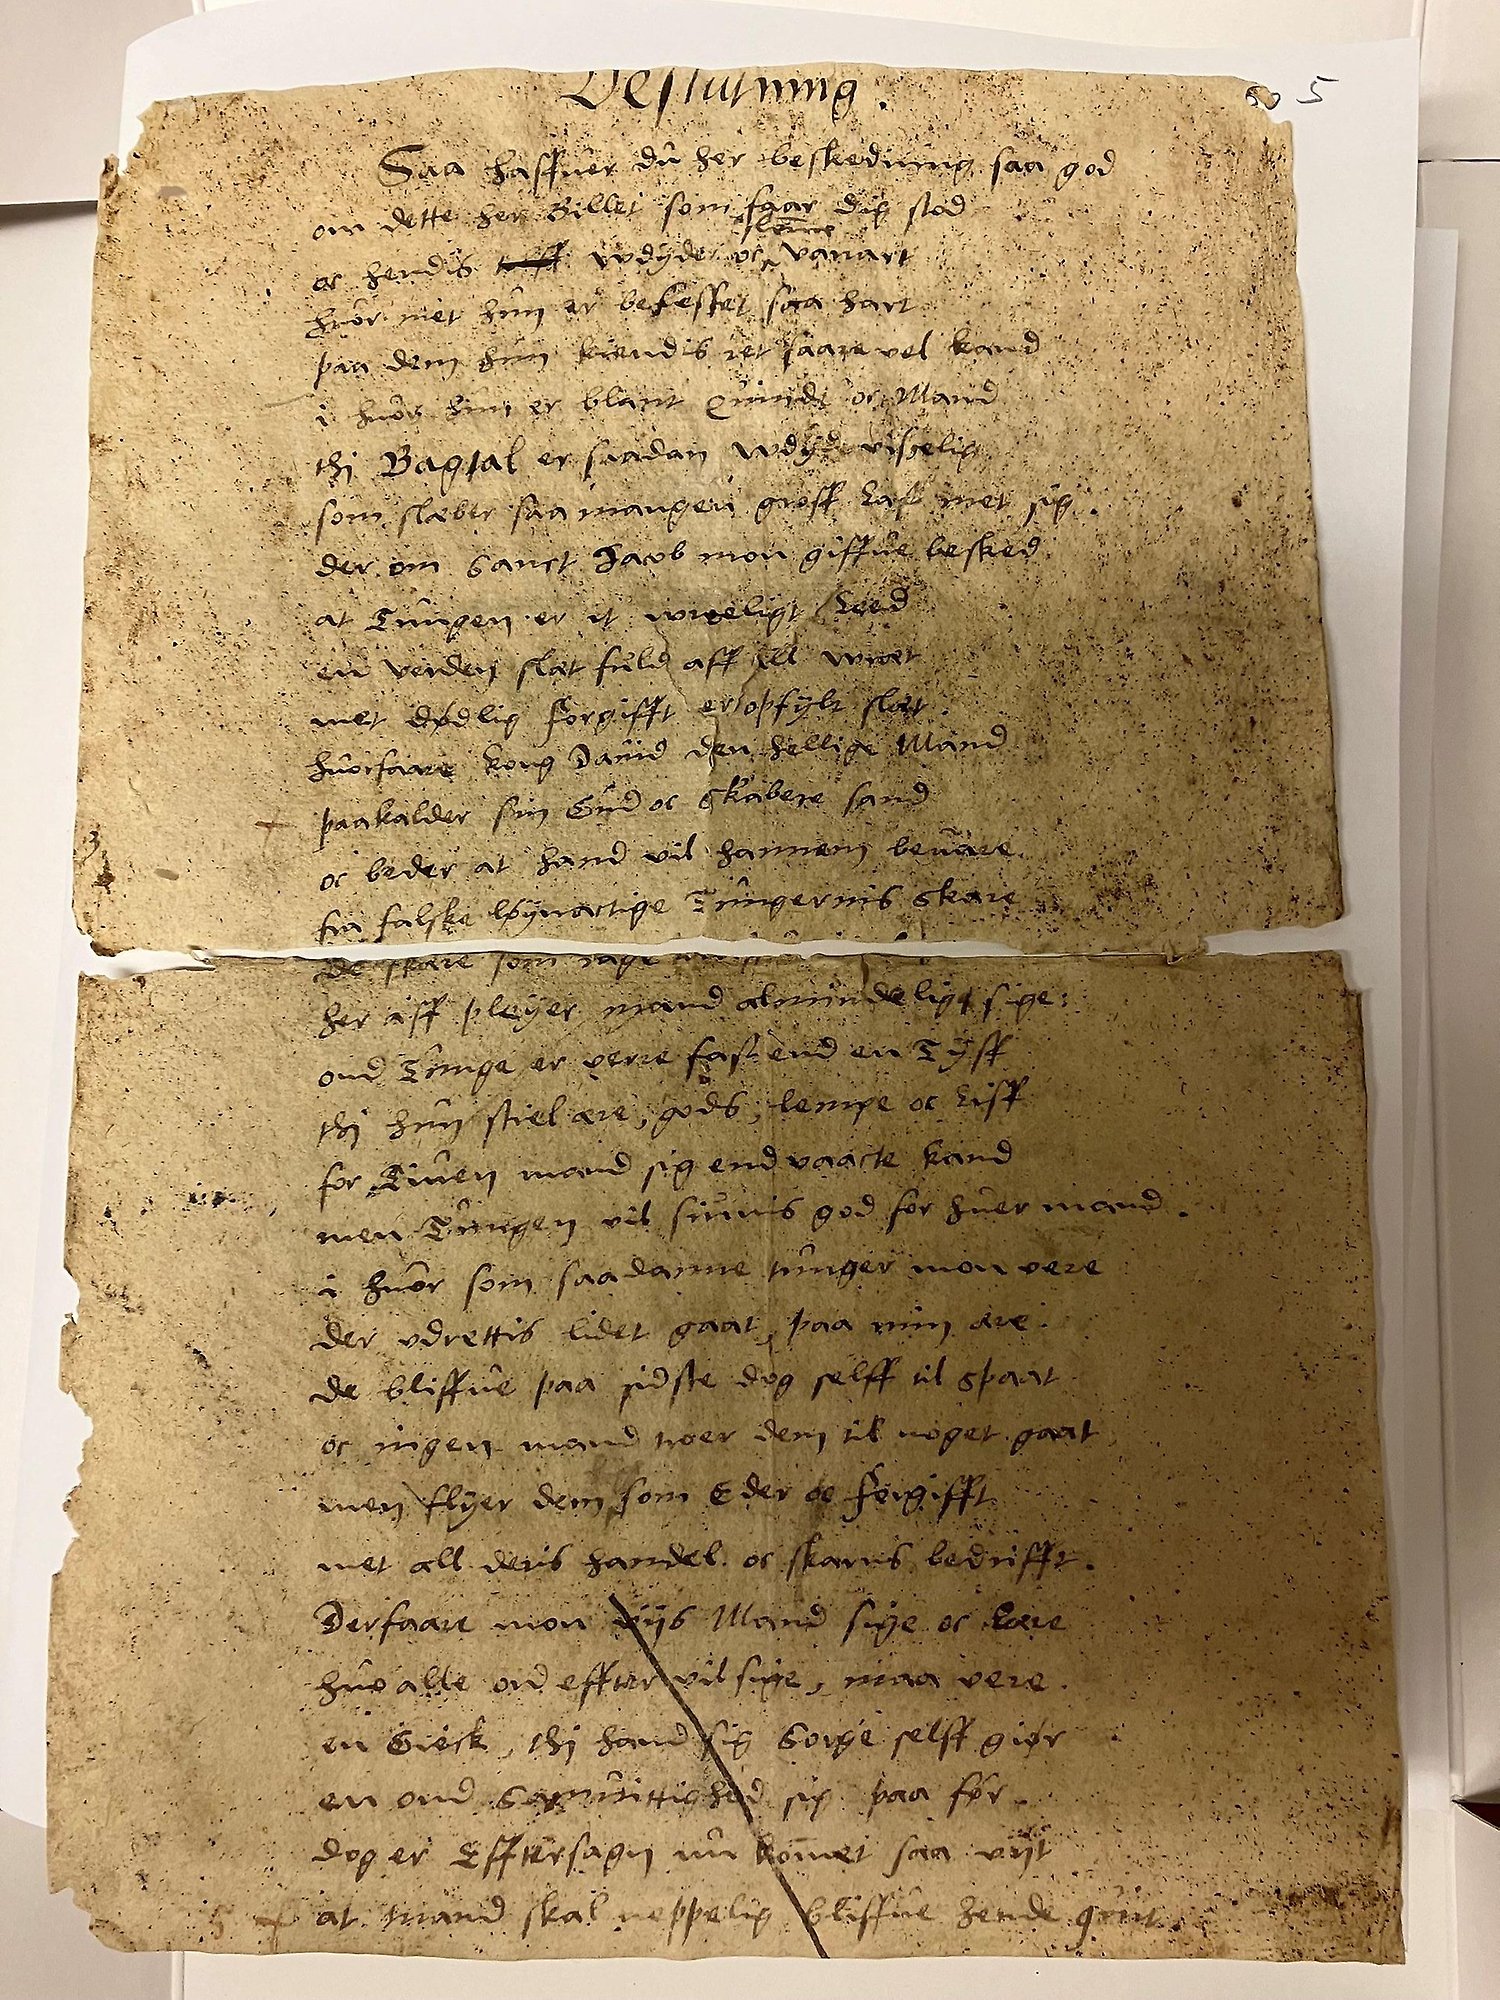 Beslutning.
5
Saa haffuer dû her beskedning saa god
om dette her Billet som faar dig stod
slemme
oc hendis wdyder oc vanart
hûor met hûn er befesset saa hart
paa dem hûn kiendis ret saare vel kand
i hûor hûn er blant Quinde oc Mand
thj Bagtal er saadan wdyd visselig
som slæber saa mangen groff Last met sig.
der om Sanct Jacob mon giffûe besked
at Tûngen er it wroeligt Leed
en verden slæt fuld aff all wræt
met dødlig Forgifft er opfylt slæt.
hûorfaare kong Dauid den hellige Mand
paakalder sin Gûd oc skabere sand
oc beder at hand vil hannem beuare.
fra falske løynactige Tûngernis skare
De skære som rage
her aff pleyer mand almindeligt sige:
ond Tûnge er verre fast end en Tyff
thj hûn stiel ære, gods, lempe oc Liff
for Tiuen mand sig end vaacte kand
men Tûngen vil siunis god for hûer mand.
i hûor som saadanne tûnger mon vere
der vdrettis lidet gaat, paa min ære.
de bliffûe paa sidste dog selff til spaat
oc ingen mand troer dem til noget gaat
men flyer dem som Eder oc Forgifft
met all deris handel oc skarns bedrifft.
Derfaare mon viis Mand sige oc Lære
hûo alle ord effter vil sige, maa vere.
en Gieck, thj hand sig Sorge selff giør
en ond Samuittighed sig paa før.
dog er Efftersagn nû kommet saa vijt
at mand skal neppelig bliffûe hende qûit.